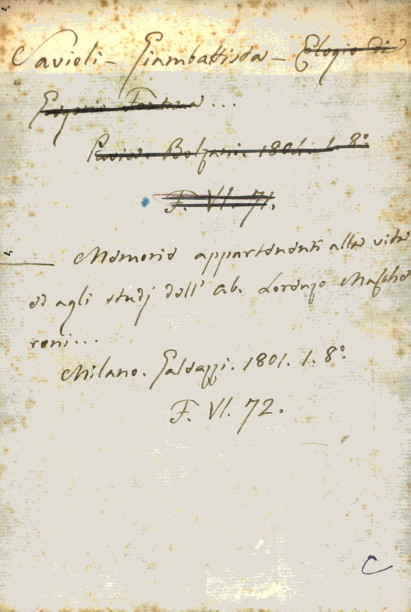 Savioli - Giambattista - Elogio di
Gregorio Fontana ...
Pavia. Bolzani. 1804. 1. 8°
F. VI. 71.
— Memorie appartenenti alla vita
ed agli studj dell' ab. Lorenzo Masche
roni...
Milano. Galeazzi. 1801. 1. 8°
F. VI. 72.
C